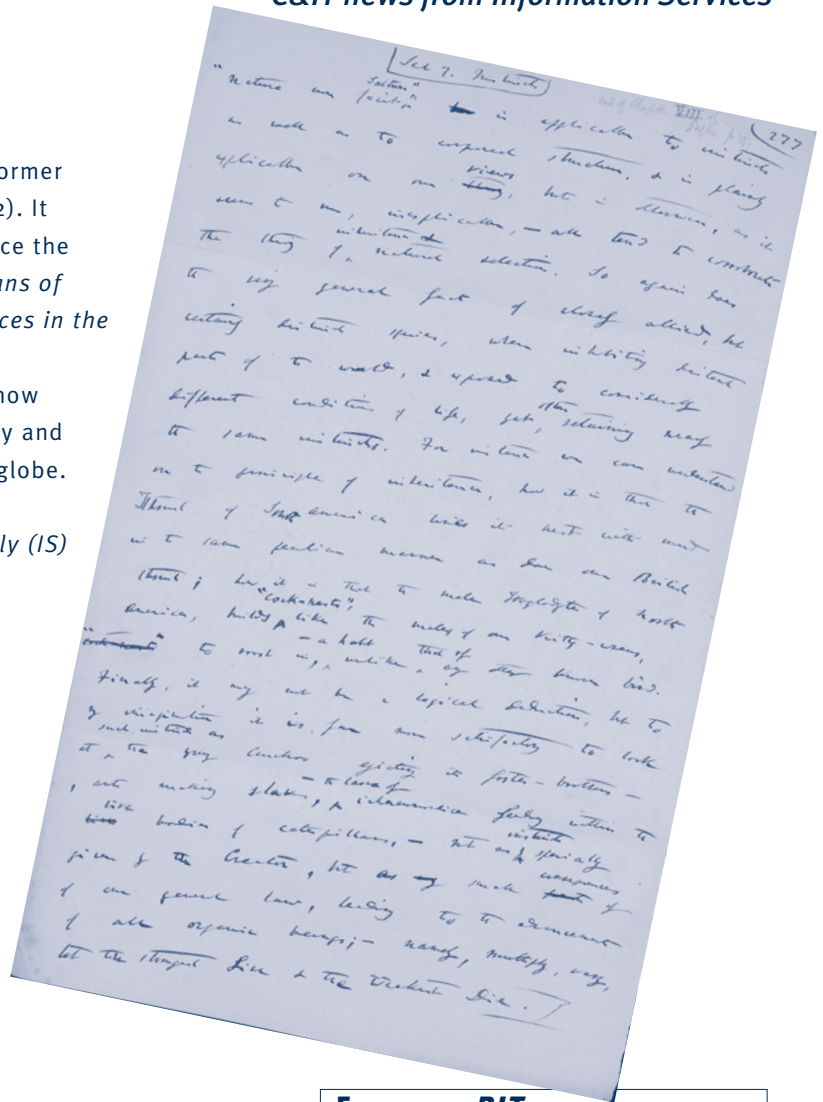 C&IT news from Information Services
ormer
2). It
ce the
ans of
ces in the
now
y and
globe.
ly (IS)
Sect 7. Instinct
277
"Natura non facit saltum" is applicable to instincts
as well as to corporeal structure, & is plainly
explicable on our views, but is otherwise, as it
seems to me, inexplicable, — all tend to corroborate
the theory of natural selection. So again does
the very general fact of closely allied, but
certainly distinct species, when inhabiting distant
parts of the world, & exposed to considerably
different conditions of life, yet often retaining nearly
the same instincts. For instance we can understand
on the principle of inheritance, how it is that the
Thrush of South America lines its nest with mud
in the same peculiar manner as does our British
thrush; how it is that the male Troglodytes of North
America, builds "cock-nests", like the males of our Kitty-wrens,
to roost in, — a habit unlike that of any other known bird.
Finally, it may not be a logical deduction, but to
my imagination it is far more satisfactory to look
at such instincts as the young cuckoo ejecting its foster-brothers —
ants making slaves, — the larvæ of ichneumonidæ feeding within the
live bodies of caterpillars, — not as specially
given by the Creator, but as small consequences of
one general law, leading to the advancement
of all organic beings; — namely, multiply, vary,
let the strongest Live & the weakest Die.